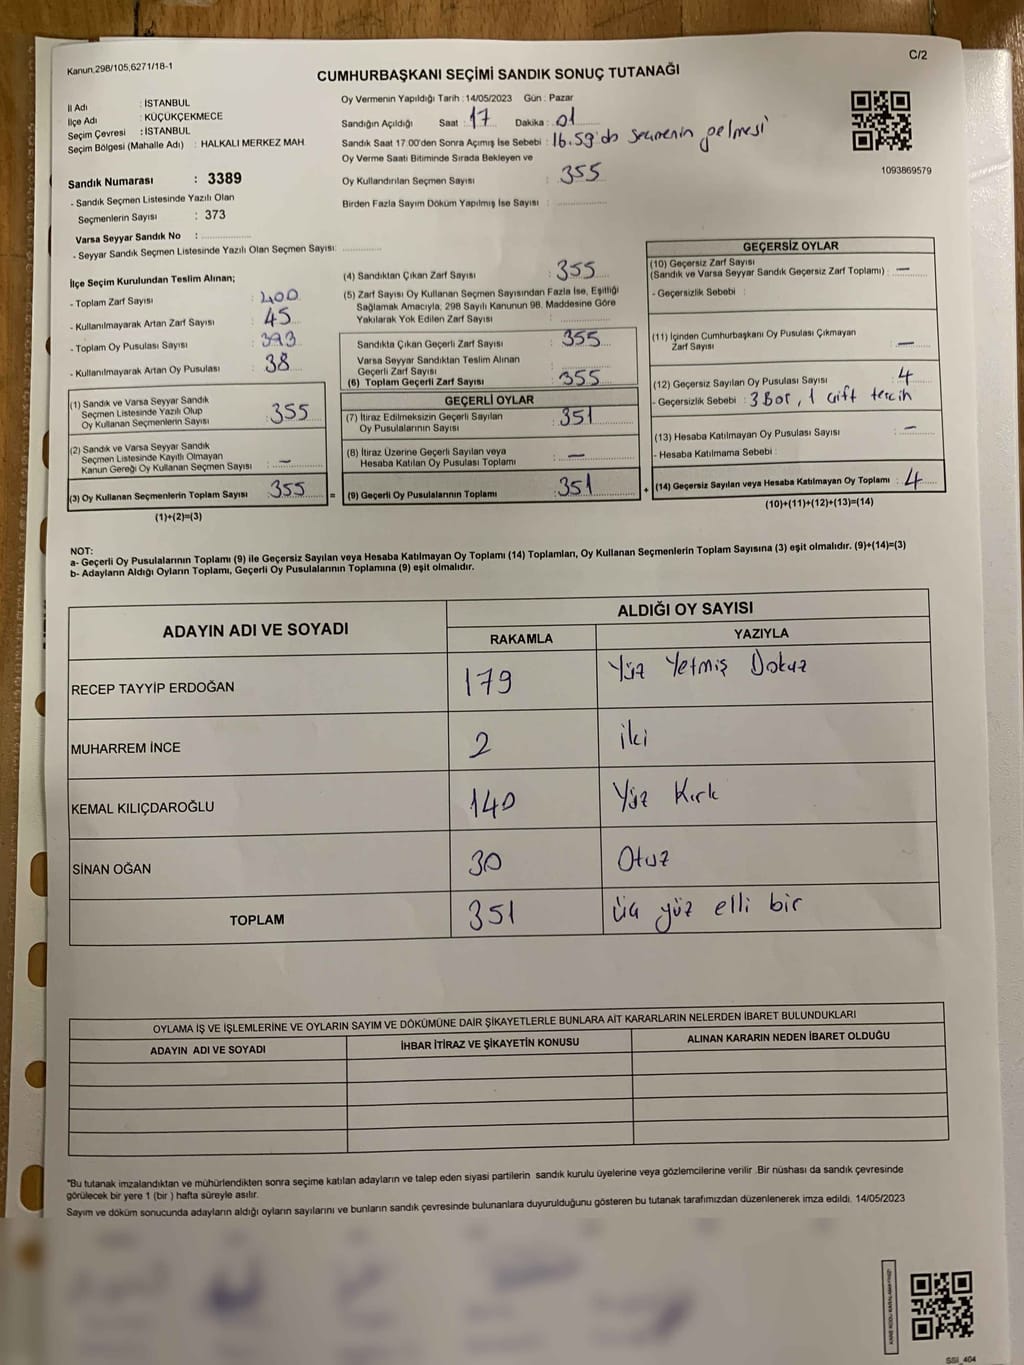 Kanun.298/105,6271/18-1
C/2
CUMHURBAŞKANI SEÇİMİ SANDIK SONUÇ TUTANAĞI
İl Adı : İSTANBUL
İlçe Adı : KÜÇÜKÇEKMECE
Seçim Çevresi : İSTANBUL
Seçim Bölgesi (Mahalle Adı) : HALKALI MERKEZ MAH.
Sandık Numarası : 3389
- Sandık Seçmen Listesinde Yazılı Olan
Seçmenlerin Sayısı : 373
Varsa Seyyar Sandık No :
- Seyyar Sandık Seçmen Listesinde Yazılı Olan Seçmen Sayısı:
Oy Vermenin Yapıldığı Tarih : 14/05/2023 Gün : Pazar
Sandığın Açıldığı Saat : 17 Dakika : 01
Sandık Saat 17.00'den Sonra Açımış İse Sebebi : 16.59'da seçmenin gelmesi
Oy Verme Saati Bitiminde Sırada Bekleyen ve
Oy Kullandırılan Seçmen Sayısı : 355
Birden Fazla Sayım Döküm Yapılmış İse Sayısı :
1093869579
İlçe Seçim Kurulundan Teslim Alınan;
- Toplam Zarf Sayısı : 400
- Kullanılmayarak Artan Zarf Sayısı : 45
- Toplam Oy Pusulası Sayısı : 393
- Kullanılmayarak Artan Oy Pusulası : 38
(1) Sandık ve Varsa Seyyar Sandık
Seçmen Listesinde Yazılı Olup
Oy Kullanan Seçmenlerin Sayısı : 355
(2) Sandık ve Varsa Seyyar Sandık
Seçmen Listesinde Kayıtlı Olmayan
Kanun Gereği Oy Kullanan Seçmen Sayısı : —
(3) Oy Kullanan Seçmenlerin Toplam Sayısı : 355
(1)+(2)=(3)
=
(4) Sandıktan Çıkan Zarf Sayısı : 355
(5) Zarf Sayısı Oy Kullanan Seçmen Sayısından Fazla İse, Eşitliği
Sağlamak Amacıyla, 298 Sayılı Kanunun 98. Maddesine Göre
Yakılarak Yok Edilen Zarf Sayısı :
Sandıkta Çıkan Geçerli Zarf Sayısı : 355
Varsa Seyyar Sandıktan Teslim Alınan
Geçerli Zarf Sayısı :
(6) Toplam Geçerli Zarf Sayısı : 355
GEÇERLİ OYLAR
(7) İtiraz Edilmeksizin Geçerli Sayılan
Oy Pusulalarının Sayısı : 351
(8) İtiraz Üzerine Geçerli Sayılan veya
Hesaba Katılan Oy Pusulası Toplamı : —
(9) Geçerli Oy Pusulalarının Toplamı : 351
+
GEÇERSİZ OYLAR
(10) Geçersiz Zarf Sayısı
(Sandık ve Varsa Seyyar Sandık Geçersiz Zarf Toplamı) : —
- Geçersizlik Sebebi :
(11) İçinden Cumhurbaşkanı Oy Pusulası Çıkmayan
Zarf Sayısı : —
(12) Geçersiz Sayılan Oy Pusulası Sayısı : 4
- Geçersizlik Sebebi : 3 Boş, 1 çift tercih
(13) Hesaba Katılmayan Oy Pusulası Sayısı : —
- Hesaba Katılmama Sebebi :
(14) Geçersiz Sayılan veya Hesaba Katılmayan Oy Toplamı : 4
(10)+(11)+(12)+(13)=(14)
NOT:
a- Geçerli Oy Pusulalarının Toplamı (9) ile Geçersiz Sayılan veya Hesaba Katılmayan Oy Toplamı (14) Toplamları, Oy Kullanan Seçmenlerin Toplam Sayısına (3) eşit olmalıdır. (9)+(14)=(3)
b- Adayların Aldığı Oyların Toplamı, Geçerli Oy Pusulalarının Toplamına (9) eşit olmalıdır.
ADAYIN ADI VE SOYADI
ALDIĞI OY SAYISI
RAKAMLA YAZIYLA
RECEP TAYYİP ERDOĞAN 179 Yüz Yetmiş Dokuz
MUHARREM İNCE 2 iki
KEMAL KILIÇDAROĞLU 140 Yüz Kırk
SİNAN OĞAN 30 Otuz
TOPLAM 351 üç yüz elli bir
OYLAMA İŞ VE İŞLEMLERİNE VE OYLARIN SAYIM VE DÖKÜMÜNE DAİR ŞİKAYETLERLE BUNLARA AİT KARARLARIN NELERDEN İBARET BULUNDUKLARI
ADAYIN ADI VE SOYADI İHBAR İTİRAZ VE ŞİKAYETİN KONUSU ALINAN KARARIN NEDEN İBARET OLDUĞU
"Bu tutanak imzalandıktan ve mühürlendikten sonra seçime katılan adayların ve talep eden siyasi partilerin sandık kurulu üyelerine veya gözlemcilerine verilir .Bir nüshası da sandık çevresinde
görülecek bir yere 1 (bir ) hafta süreyle asılır.
Sayım ve döküm sonucunda adayların aldığı oyların sayılarını ve bunların sandık çevresinde bulunanlara duyurulduğunu gösteren bu tutanak tarafımızdan düzenlenerek imza edildi. 14/05/2023
SSI_404